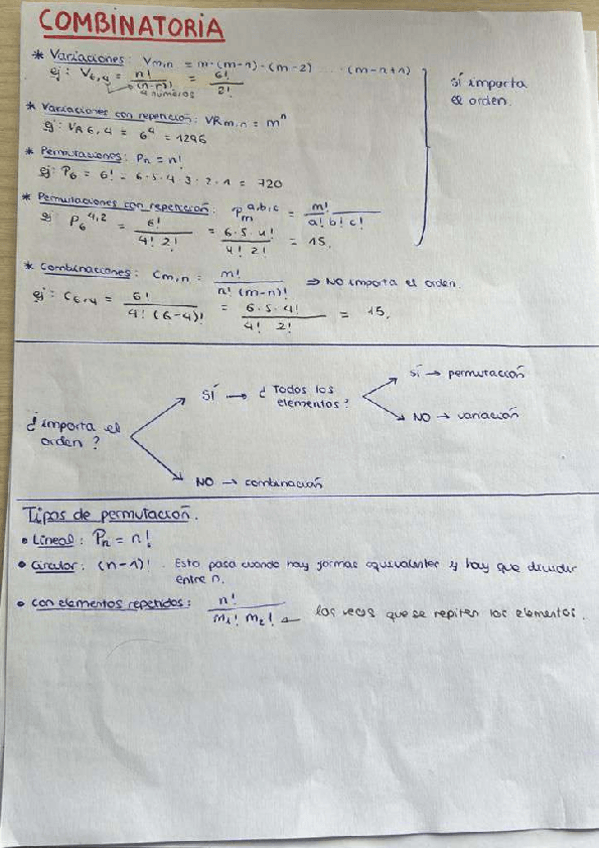 COMBINATORIA
* Variaciones: Vm,n = m·(m-1)·(m-2) ... ·(m-n+1)
ej: V6,4 = n!/(n-r)! = 6!/2!
4 números
sí importa el orden.
* Variaciones con repetición: VRm,n = m^n
ej: VR 6,4 = 6^4 = 1296
* Permutaciones: Pn = n!
ej: P6 = 6! = 6·5·4·3·2·1 = 720
* Permutaciones con repetición: Pm^a,b,c = m!/a! b! c!
ej: P6^4,2 = 6!/4! 2! = 6·5·4!/4! 2! = 15.
* Combinaciones: Cm,n = m!/n! (m-n)! ⇒ NO importa el orden.
ej: C6,4 = 6!/4! (6-4)! = 6·5·4!/4! 2! = 15.
¿importa el orden?
SÍ → ¿Todos los elementos?
SÍ → permutación
NO → variación
NO → combinación
Tipos de permutación.
• Lineal: Pn = n!
• Circular: (n-1)! . Esto pasa cuando hay formas equivalentes y hay que dividir
entre n.
• con elementos repetidos: n!/m1! m2! ← las veces que se repiten los elementos.